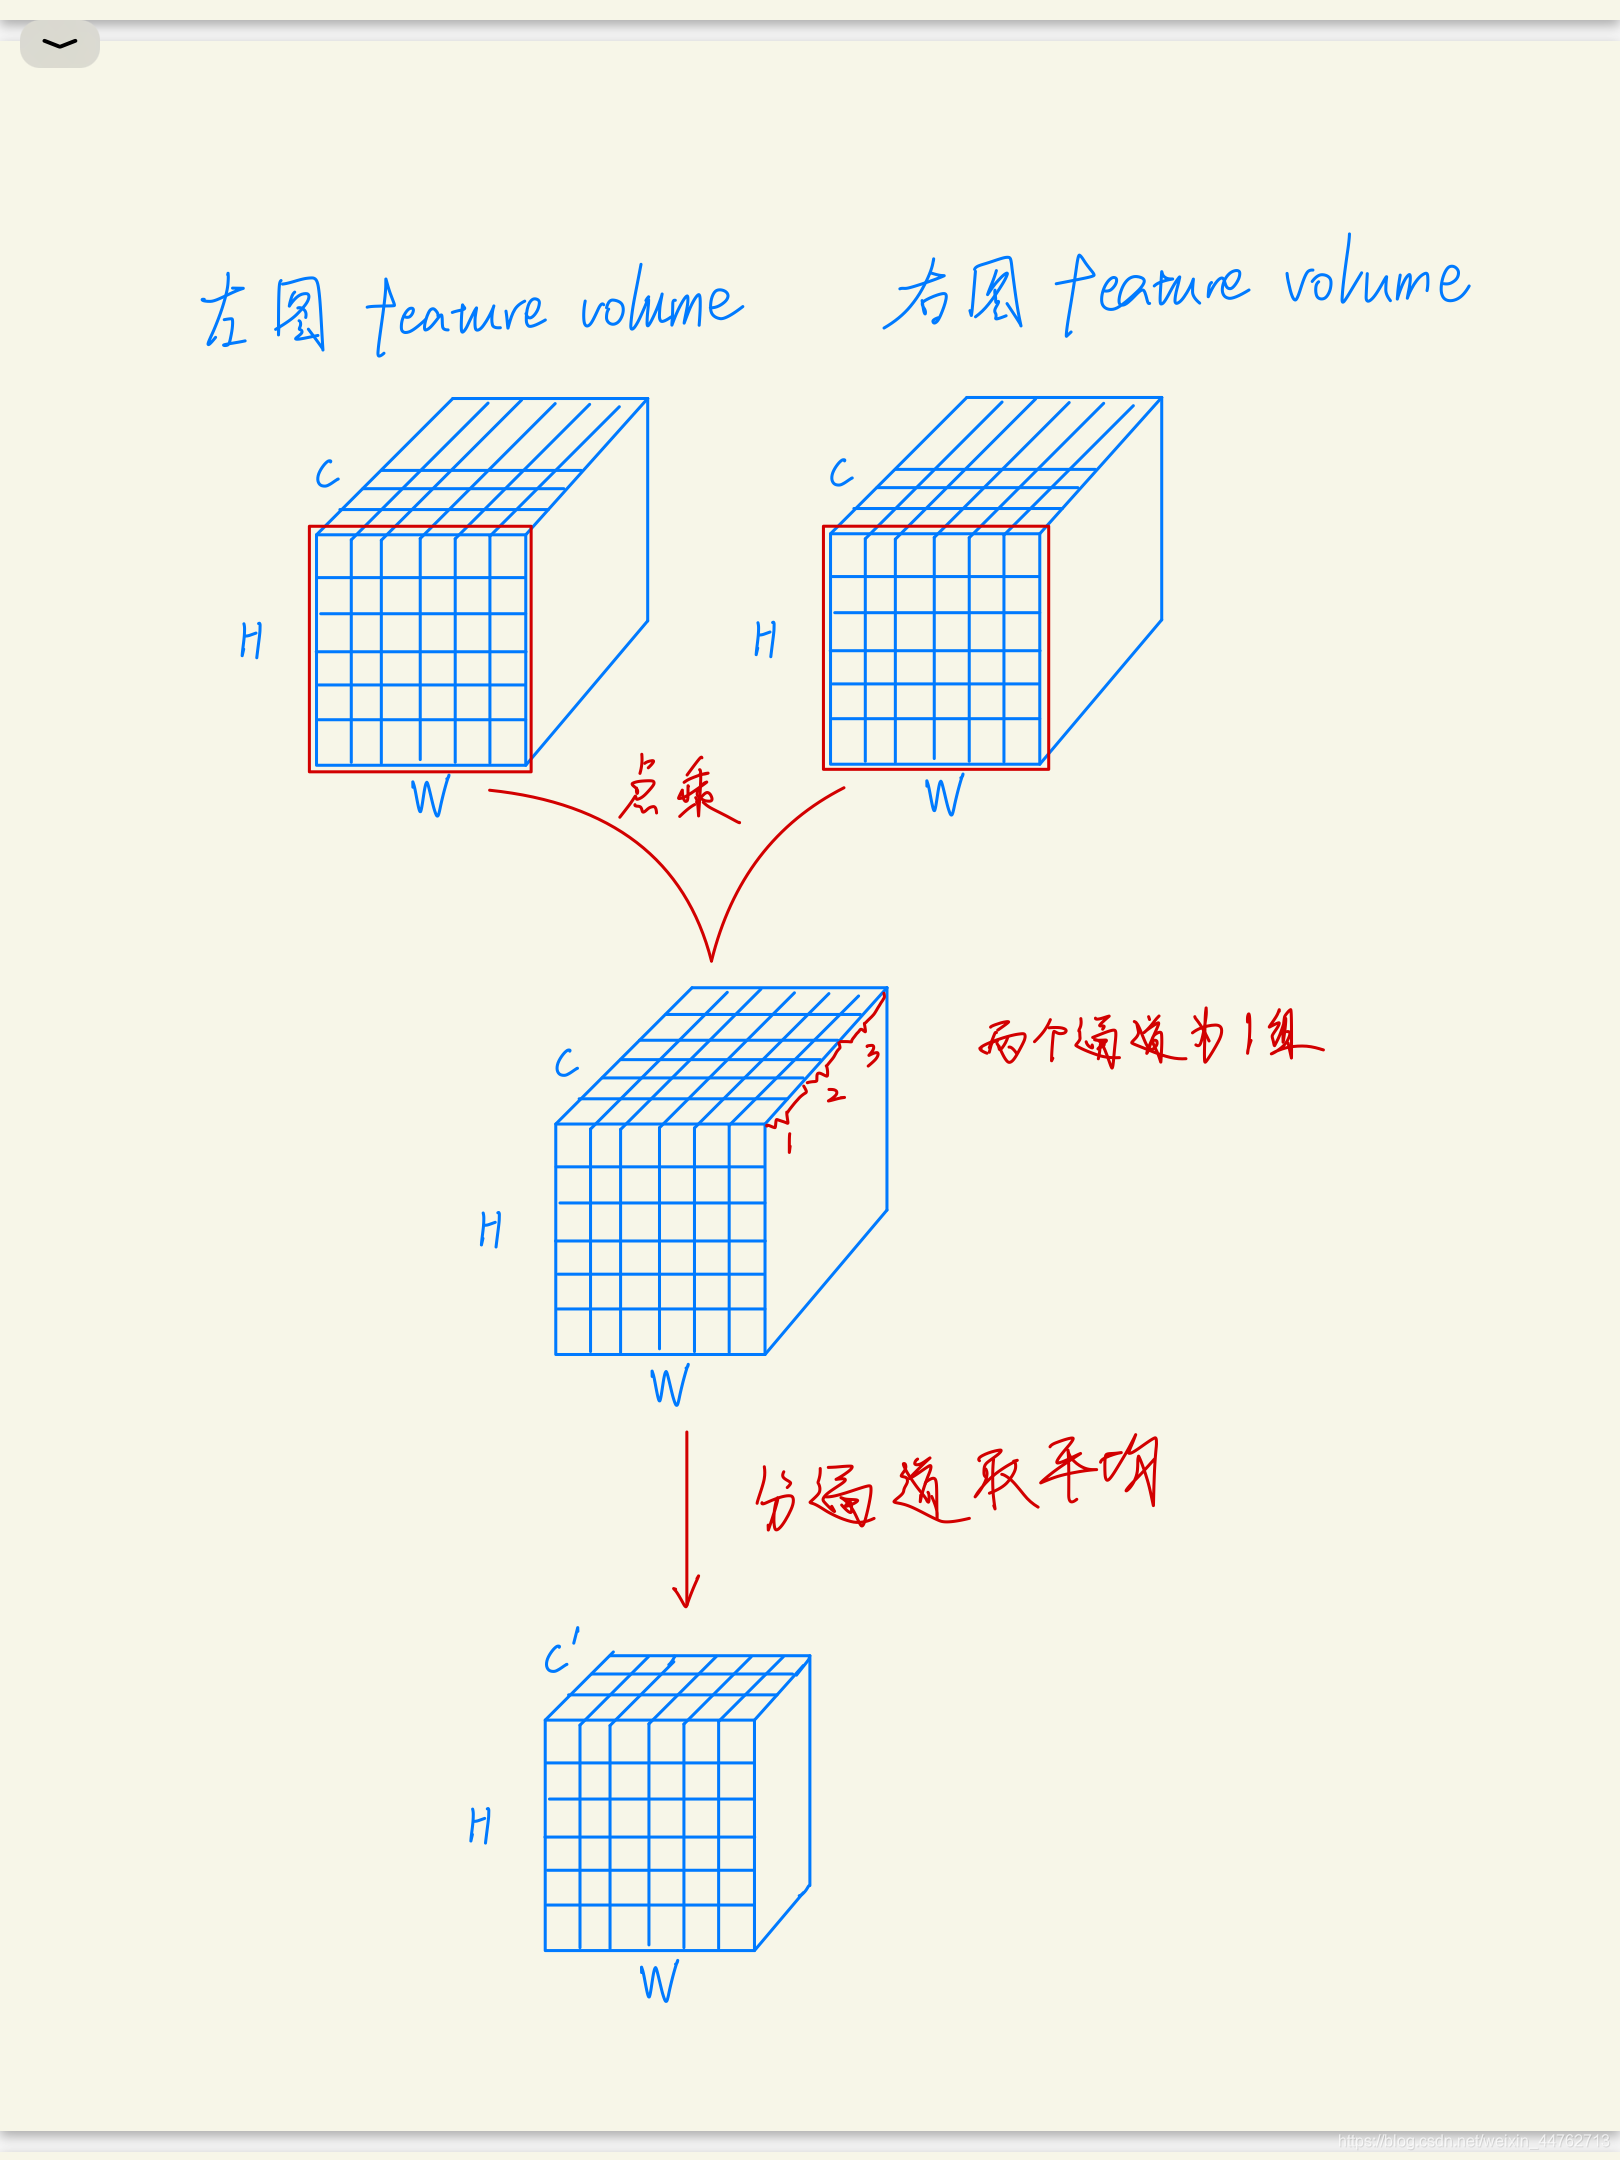 左图 feature volume
右图 feature volume
C
C
H
H
W
点乘
W
两个通道为1组
C
3
2
1
H
W
分通道取平均
C'
H
W
https://blog.csdn.net/weixin_44762713